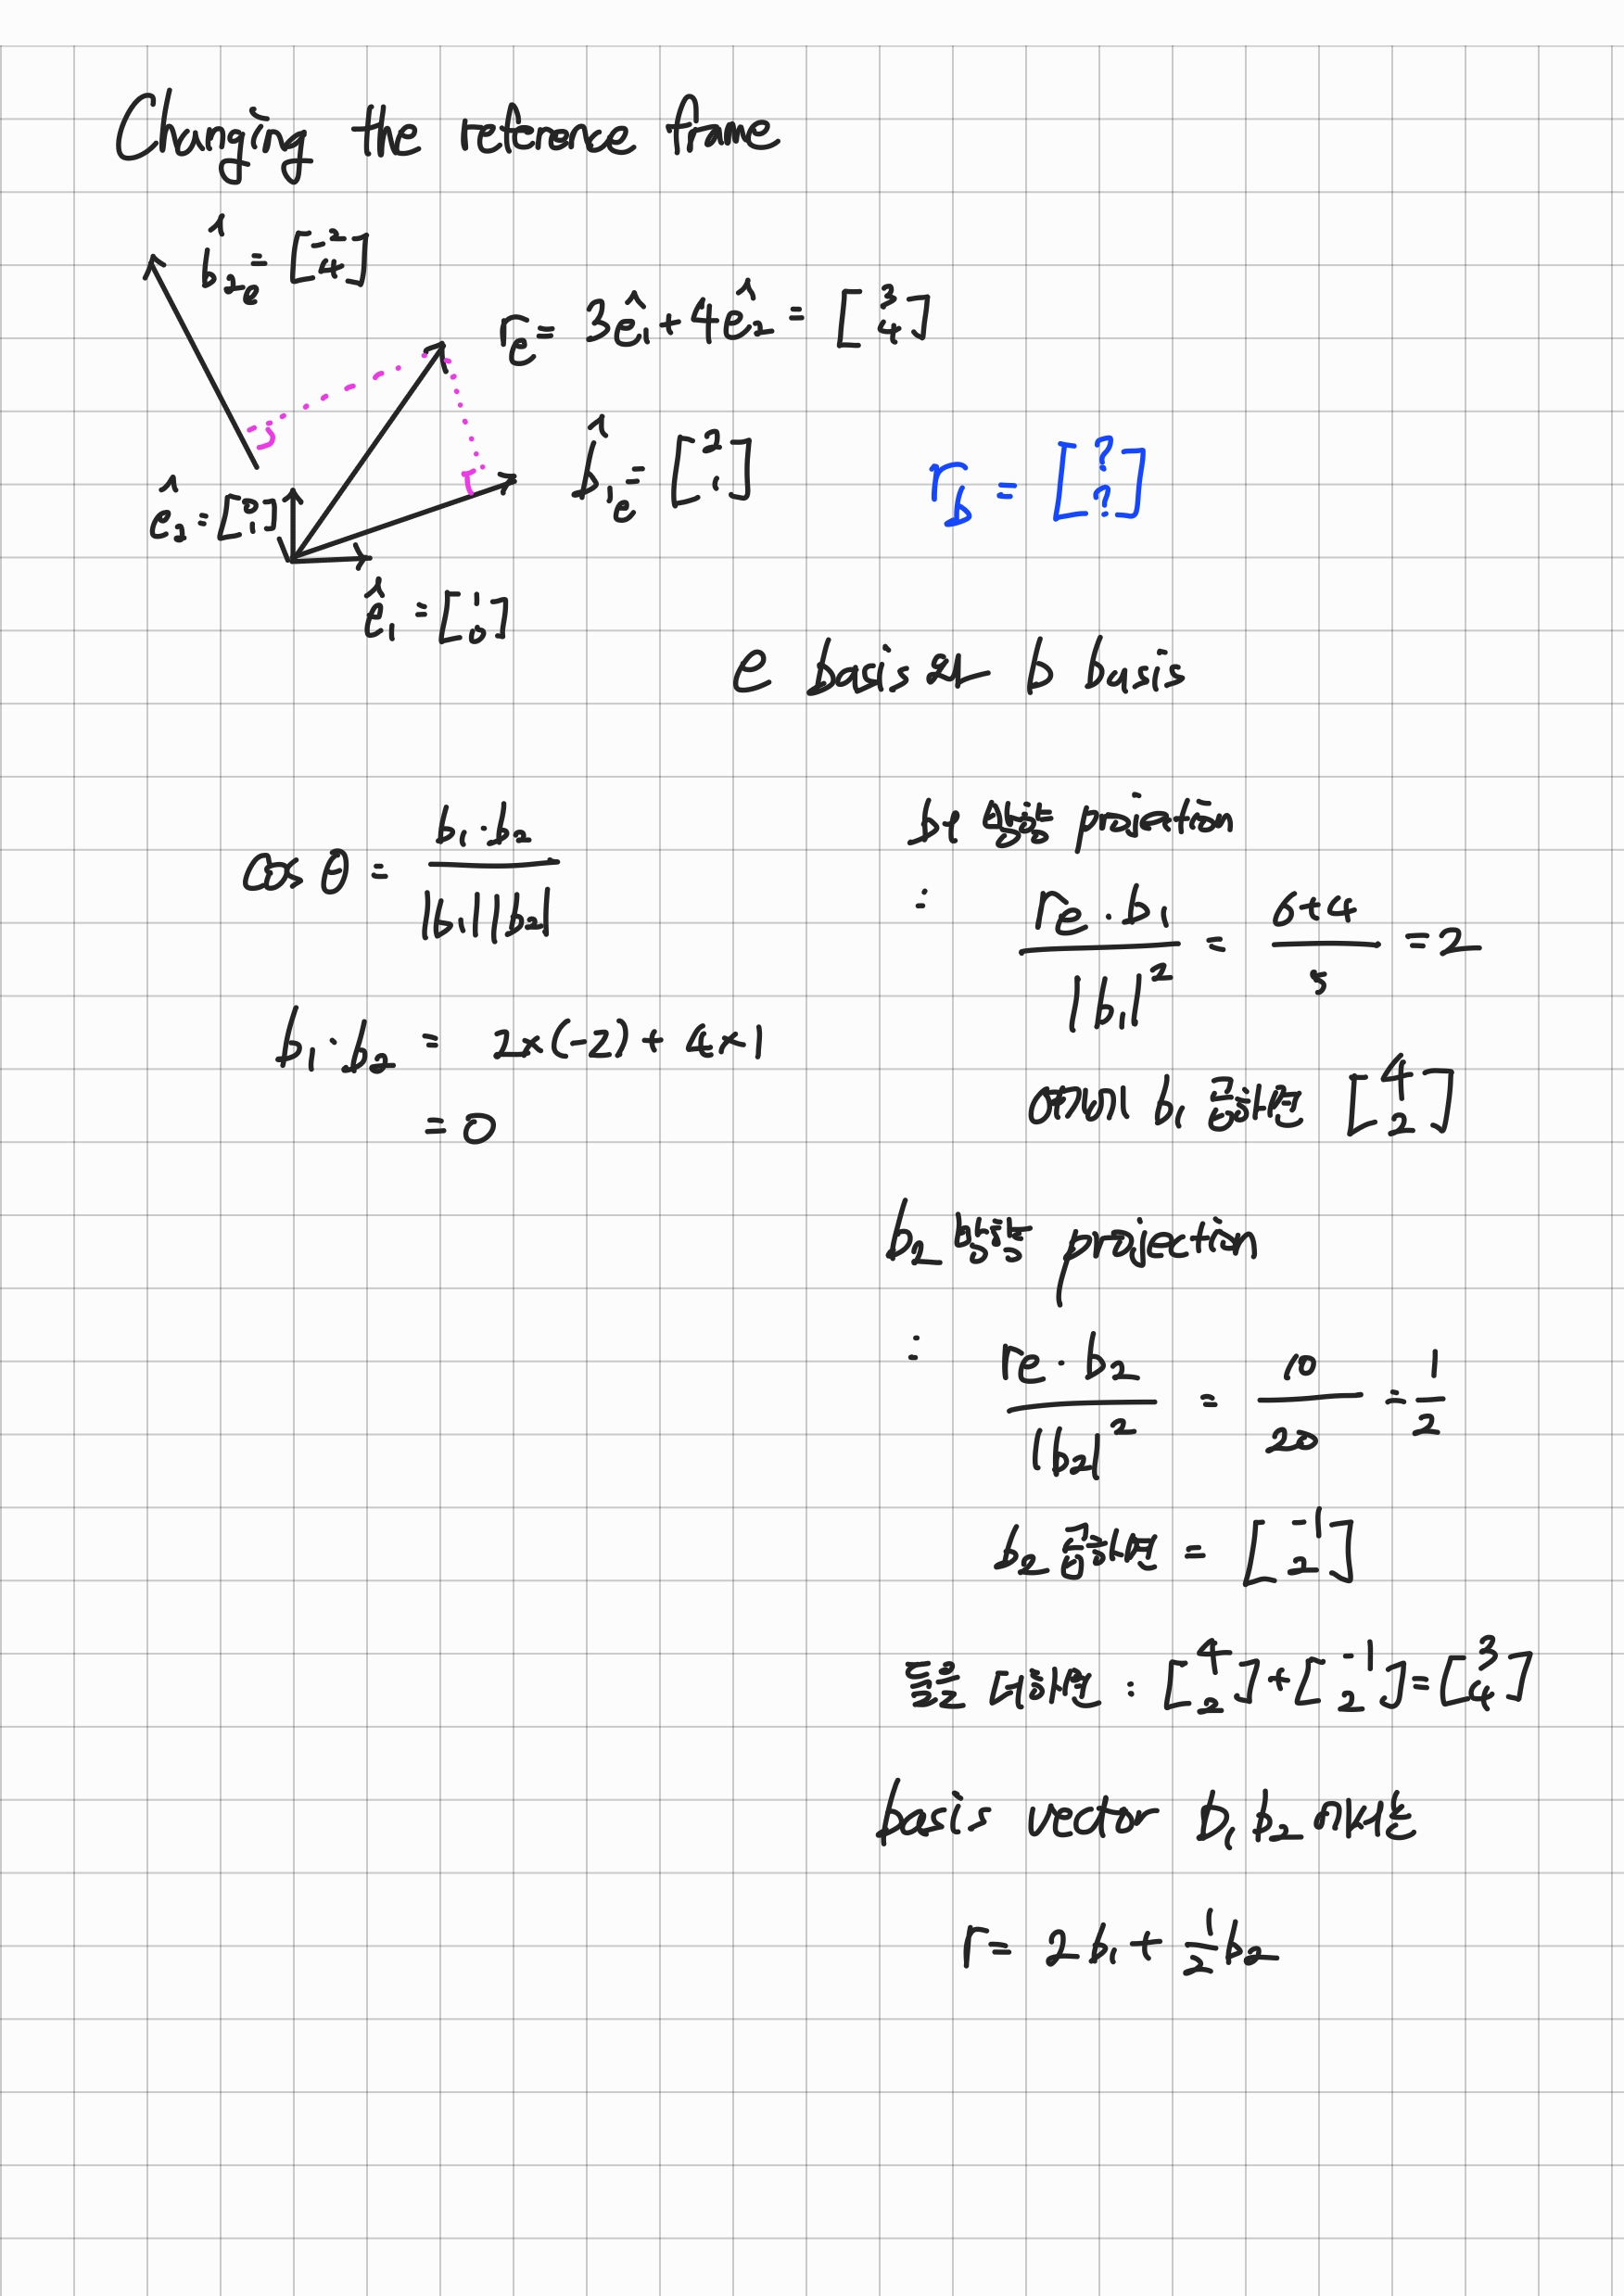 Changing the reference frame
b̂₂ₑ = [-2 4]
rₑ = 3ê₁ + 4ê₂ = [3 4]
b̂₁ₑ = [2 1]
r_b = [? ?]
ê₂ = [0 1]
ê₁ = [1 0]
e basis와 b basis
cos θ = b₁·b₂ / |b₁||b₂|
b₁·b₂ = 2×(-2) + 4×1
= 0
b1 방향 projection
: rₑ·b₁ / |b₁|² = 6+4 / 5 = 2
여기에 b₁ 곱하면 [4 2]
b₂ 방향 projection
: rₑ·b₂ / |b₂|² = 10 / 20 = 1/2
b₂ 곱하면 = [-1 2]
둘을 더하면 : [4 2] + [-1 2] = [3 4]
basis vector b₁ b₂ 에서는
r = 2b₁ + 1/2 b₂